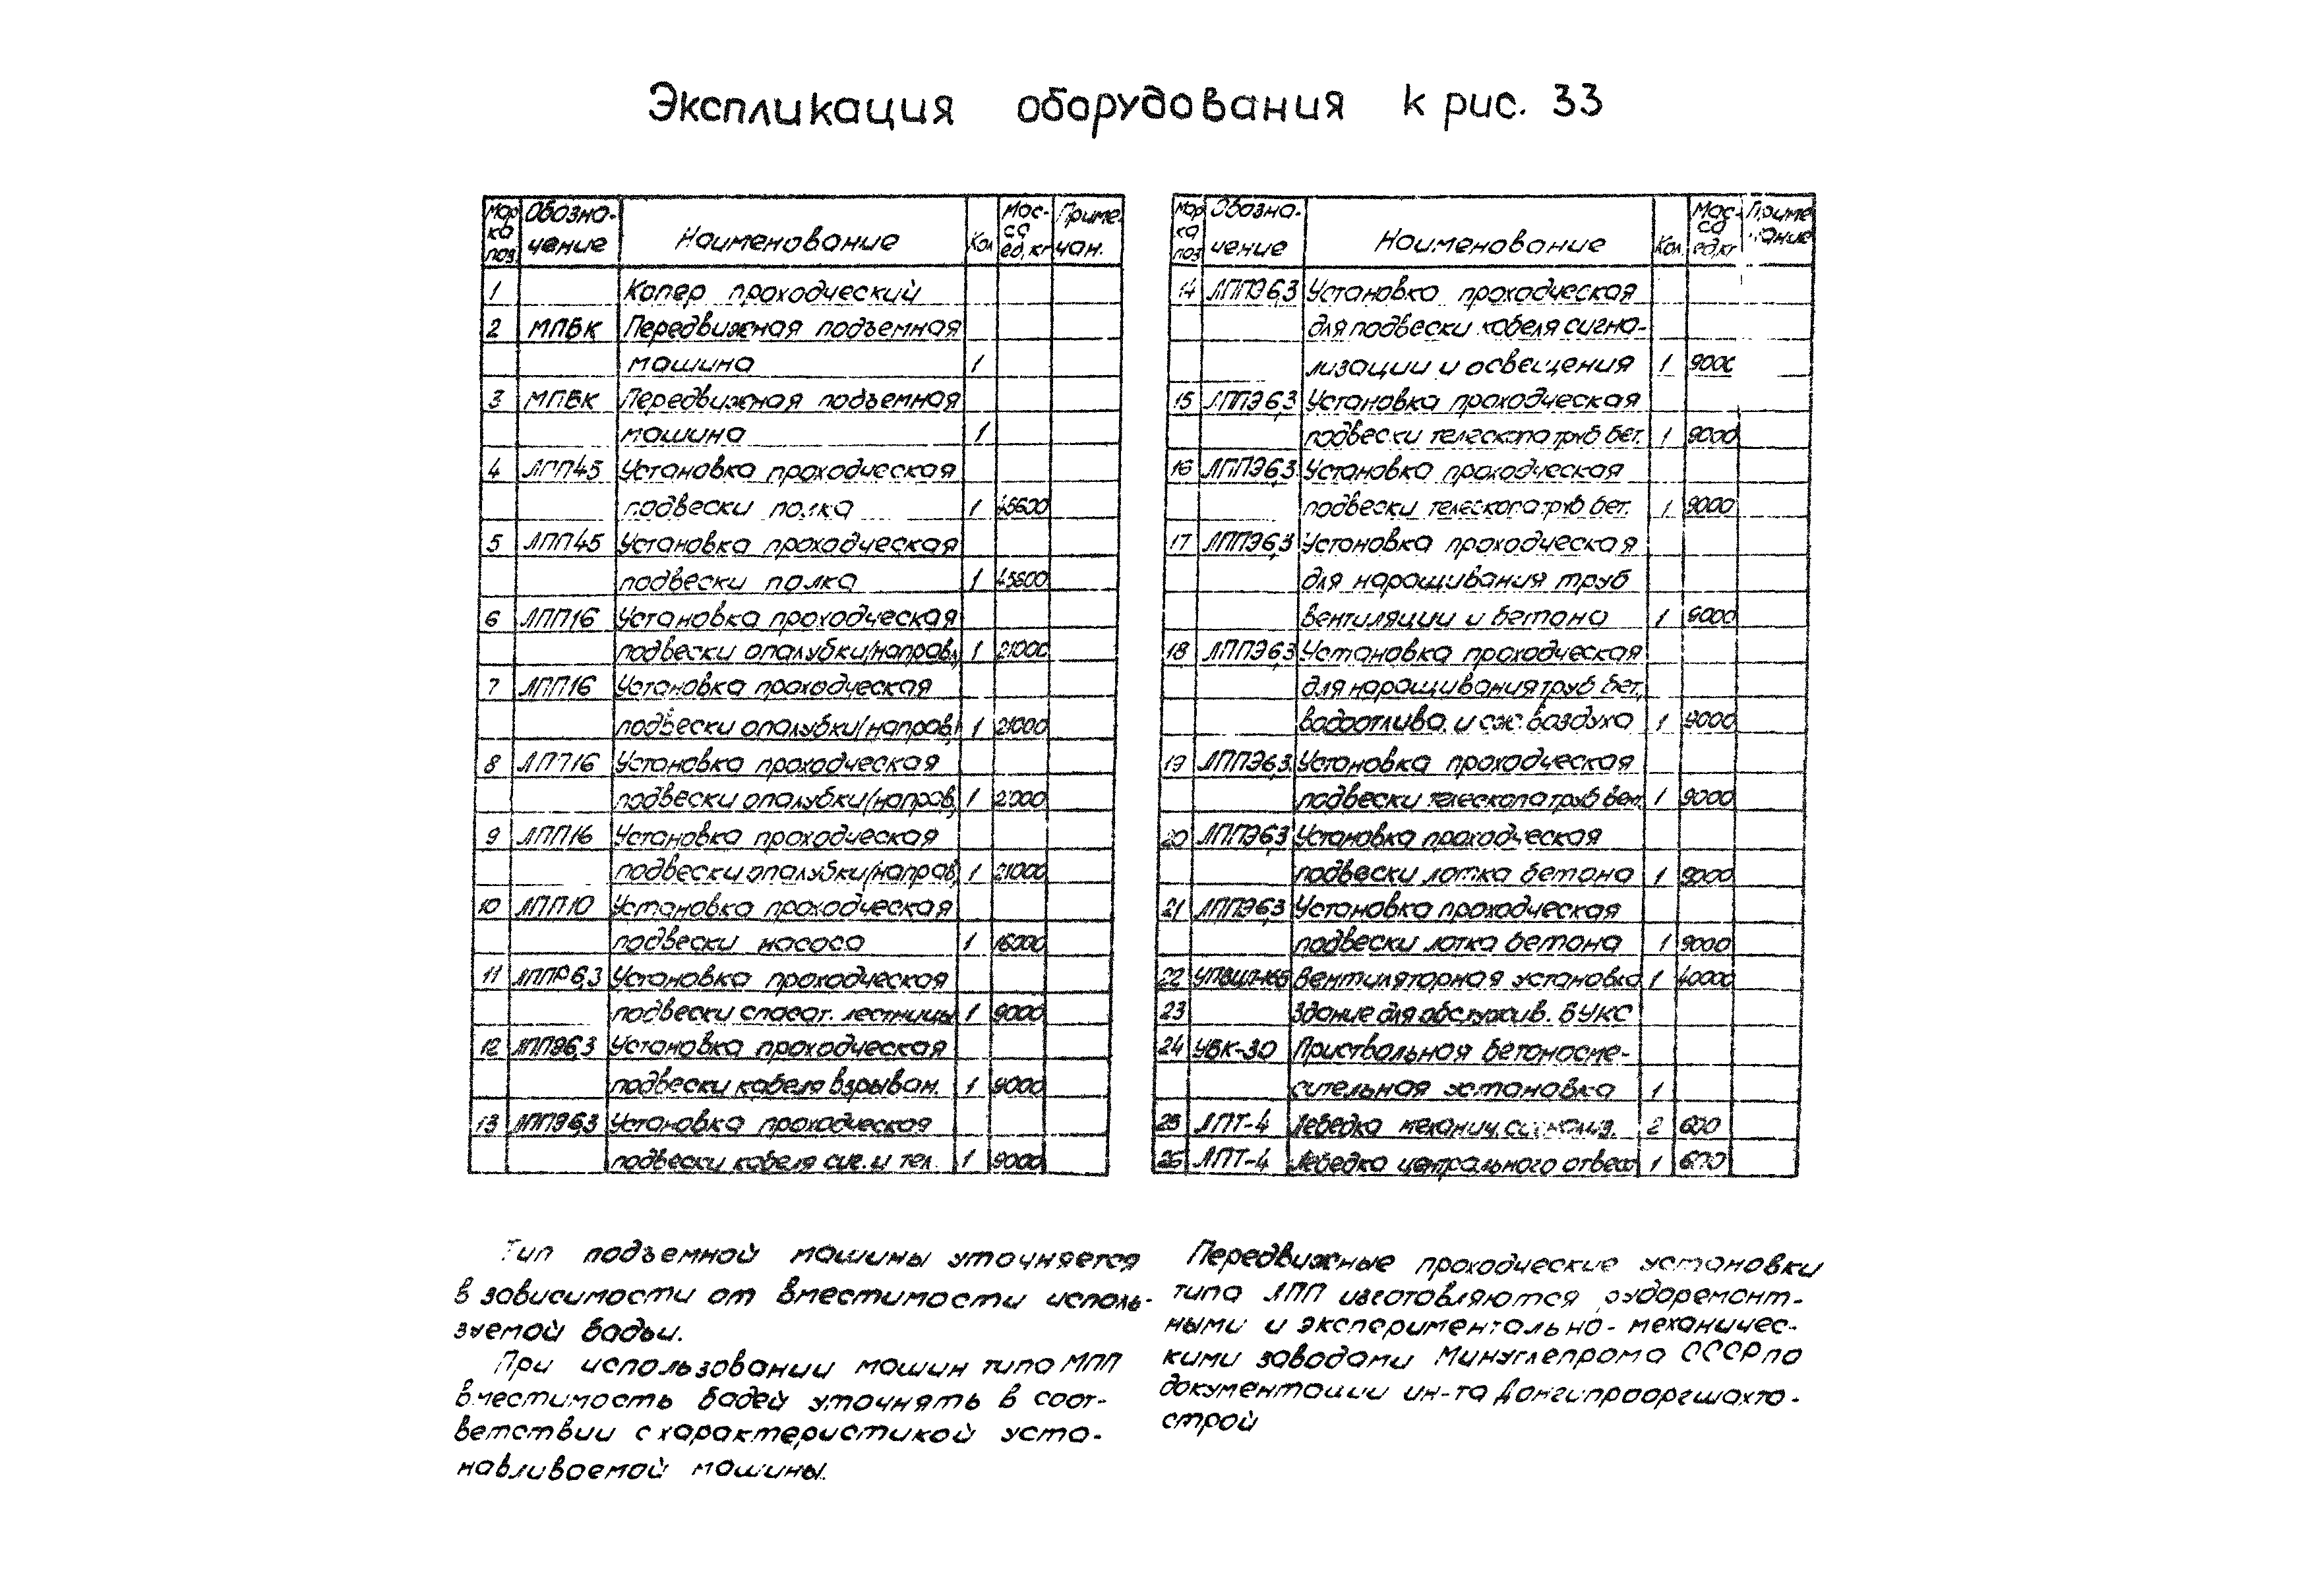 Экспликация оборудования к рис. 33
Мар ка поз. Обозна- чение Наименование Кол Мас- са ед, кг Приме чан.
1 Копер проходческий
2 МПБК Передвижная подъемная
машина 1
3 МПБК Передвижная подъемная
машина 1
4 ЛПП45 Установка проходческая
подвески полка 1 45600
5 ЛПП45 Установка проходческая
подвески полка 1 45600
6 ЛПП16 Установка проходческая
подвески опалубки/направл. 1 21000
7 ЛПП16 Установка проходческая
подвески опалубки/направ. 1 21000
8 ЛПП16 Установка проходческая
подвески опалубки/направ. 1 21000
9 ЛПП16 Установка проходческая
подвески опалубки/направ. 1 21000
10 ЛПП10 Установка проходческая
подвески насоса 1 16000
11 ЛППР6,3 Установка проходческая
подвески спасат. лестницы 1 9000
12 ЛППЭ6,3 Установка проходческая
подвески кабеля взрыван. 1 9000
13 ЛППЭ6,3 Установка проходческая
подвески кабеля сиг. и тел. 1 9000
Мар ка поз Обозна- чение Наименование Кол. Мас- са ед, кг Приме чание
14 ЛППЭ6,3 Установка проходческая
для подвески кабеля сигна-
лизации и освещения 1 9000
15 ЛППЭ6,3 Установка проходческая
подвески телескопа труб бет. 1 9000
16 ЛППЭ6,3 Установка проходческая
подвески телескопа труб бет. 1 9000
17 ЛППЭ6,3 Установка проходческая
для наращивания труб
вентиляции и бетона 1 9000
18 ЛППЭ6,3 Установка проходческая
для наращивания труб бет.,
водоотлива, и сж. воздуха 1 9000
19 ЛППЭ6,3 Установка проходческая
подвески телескопа труб вен. 1 9000
20 ЛППЭ6,3 Установка проходческая
подвески лотка бетона 1 9000
21 ЛППЭ6,3 Установка проходческая
подвески лотка бетона 1 9000
22 Вентиляторная установка 1 40000
23 Здание для обслужив. БУКС
24 УБК-30 Приствольная бетоносме-
сительная установка 1
25 ЛПТ-4 Лебедка механич. сигнализ. 2 600
26 ЛПТ-4 Лебедка центрального отвеса 1 600
Тип подъемной машины уточняется
в зависимости от вместимости исполь-
зуемой бадьи.
При использовании машин типа МПП
вместимость бадей уточнять в соот-
ветствии с характеристикой уста-
навливаемой машины.
Передвижные проходческие установки
типа ЛПП изготовляются рудоремонт-
ными и экспериментально-механичес-
кими заводами Минуглепрома СССР по
документации ин-та Донгипрооргшахто-
строй